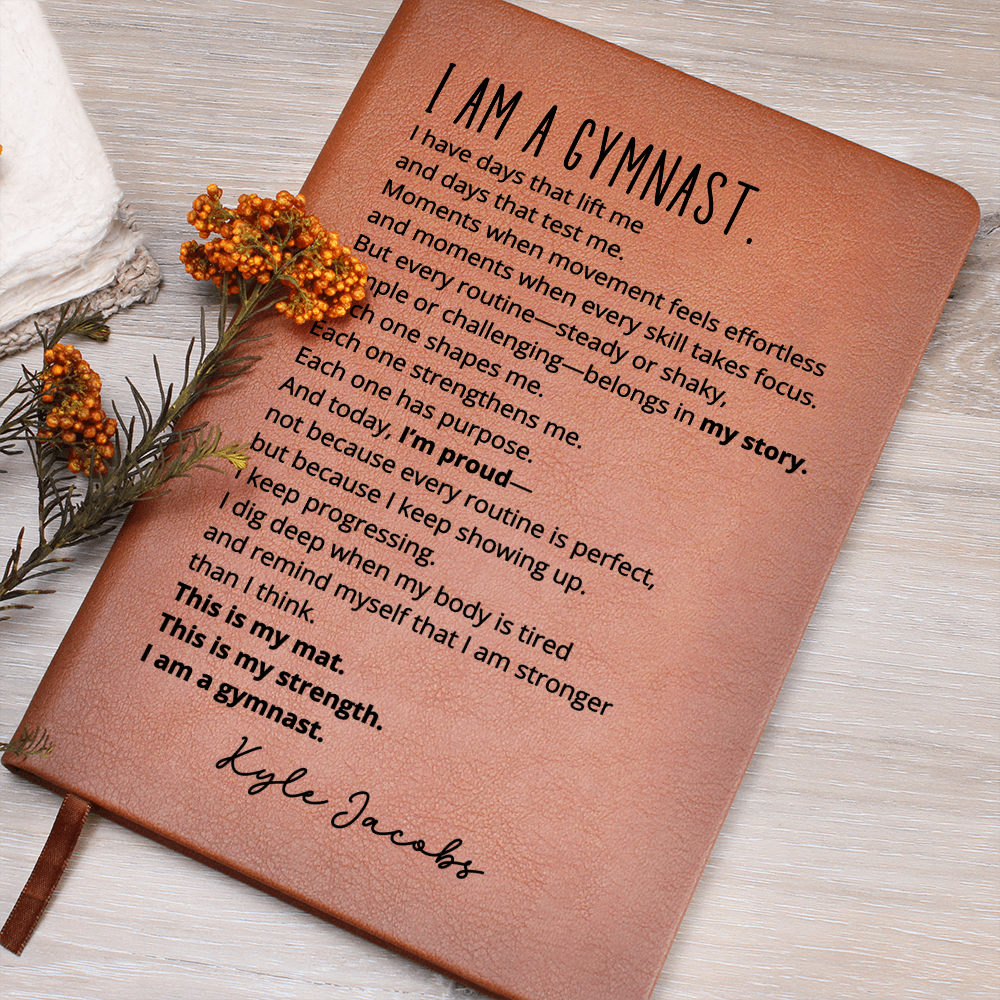 I AM A GYMNAST.
I have days that lift me
and days that test me.
Moments when movement feels effortless
and moments when every skill takes focus.
But every routine—steady or shaky,
or challenging—belongs in my story.
one shapes me.
Each one strengthens me.
Each one has purpose.
And today, I'm proud—
not because every routine is perfect,
but because I keep showing up.
I keep progressing.
I dig deep when my body is tired
and remind myself that I am stronger
than I think.
This is my mat.
This is my strength.
I am a gymnast.
Kyle Jacobs